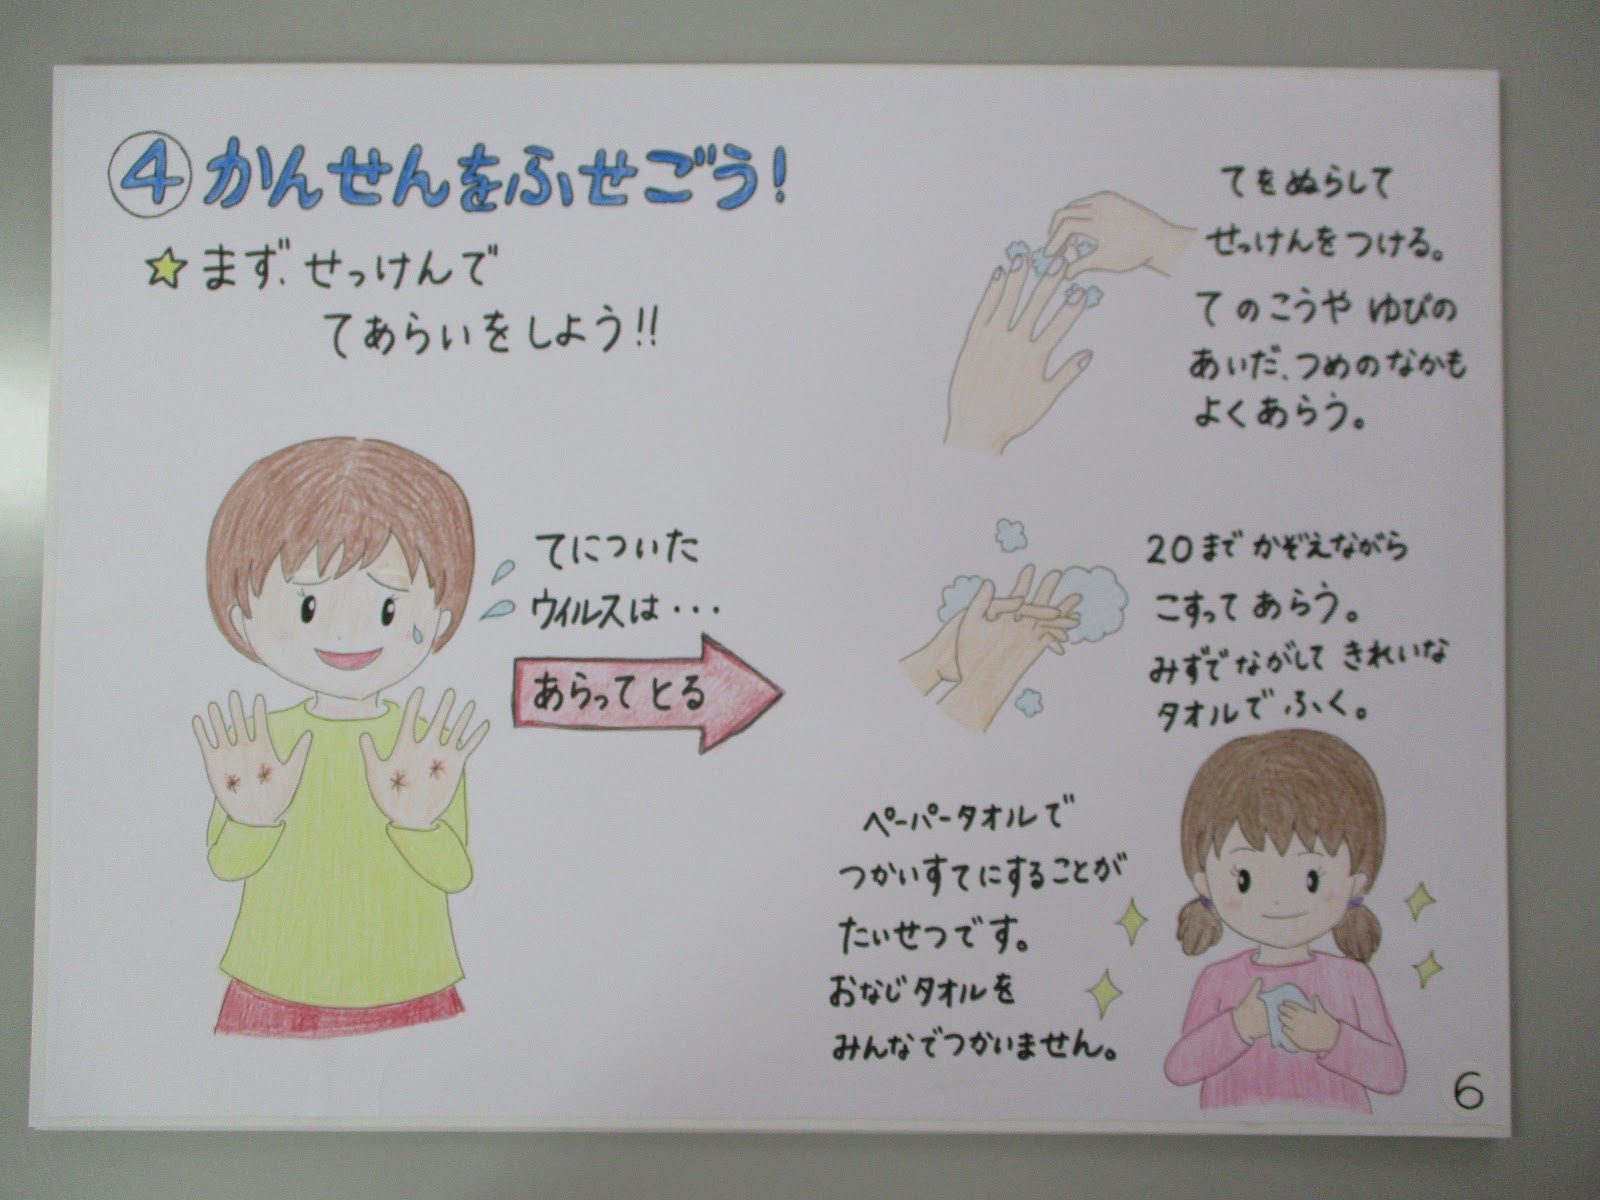 ④かんせんをふせごう!
☆まず、せっけんで
てあらいをしよう!!
てについた
ウイルスは・・・
あらってとる
てをぬらして
せっけんをつける。
てのこうや ゆびの
あいだ、つめのなかも
よくあらう。
20まで かぞえながら
こすって あらう。
みずでながして きれいな
タオルで ふく。
ペーパータオルで
つかいすてにすることが
たいせつです。
おなじタオルを
みんなでつかいません。
6